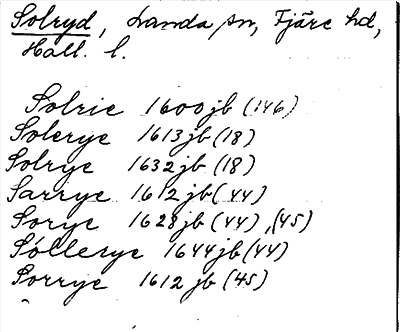 Solryd, Landa sn, Fjäre hd,
Hall. l.
Solrie 1600 jb (146)
Solerye 1613 jb (18)
Solrye 1632 jb (18)
Sarrye 1612 jb (44)
Sorye 1628 jb (44), (45)
Sóllerye 1644 jb (44)
Sorrye 1612 jb (45)